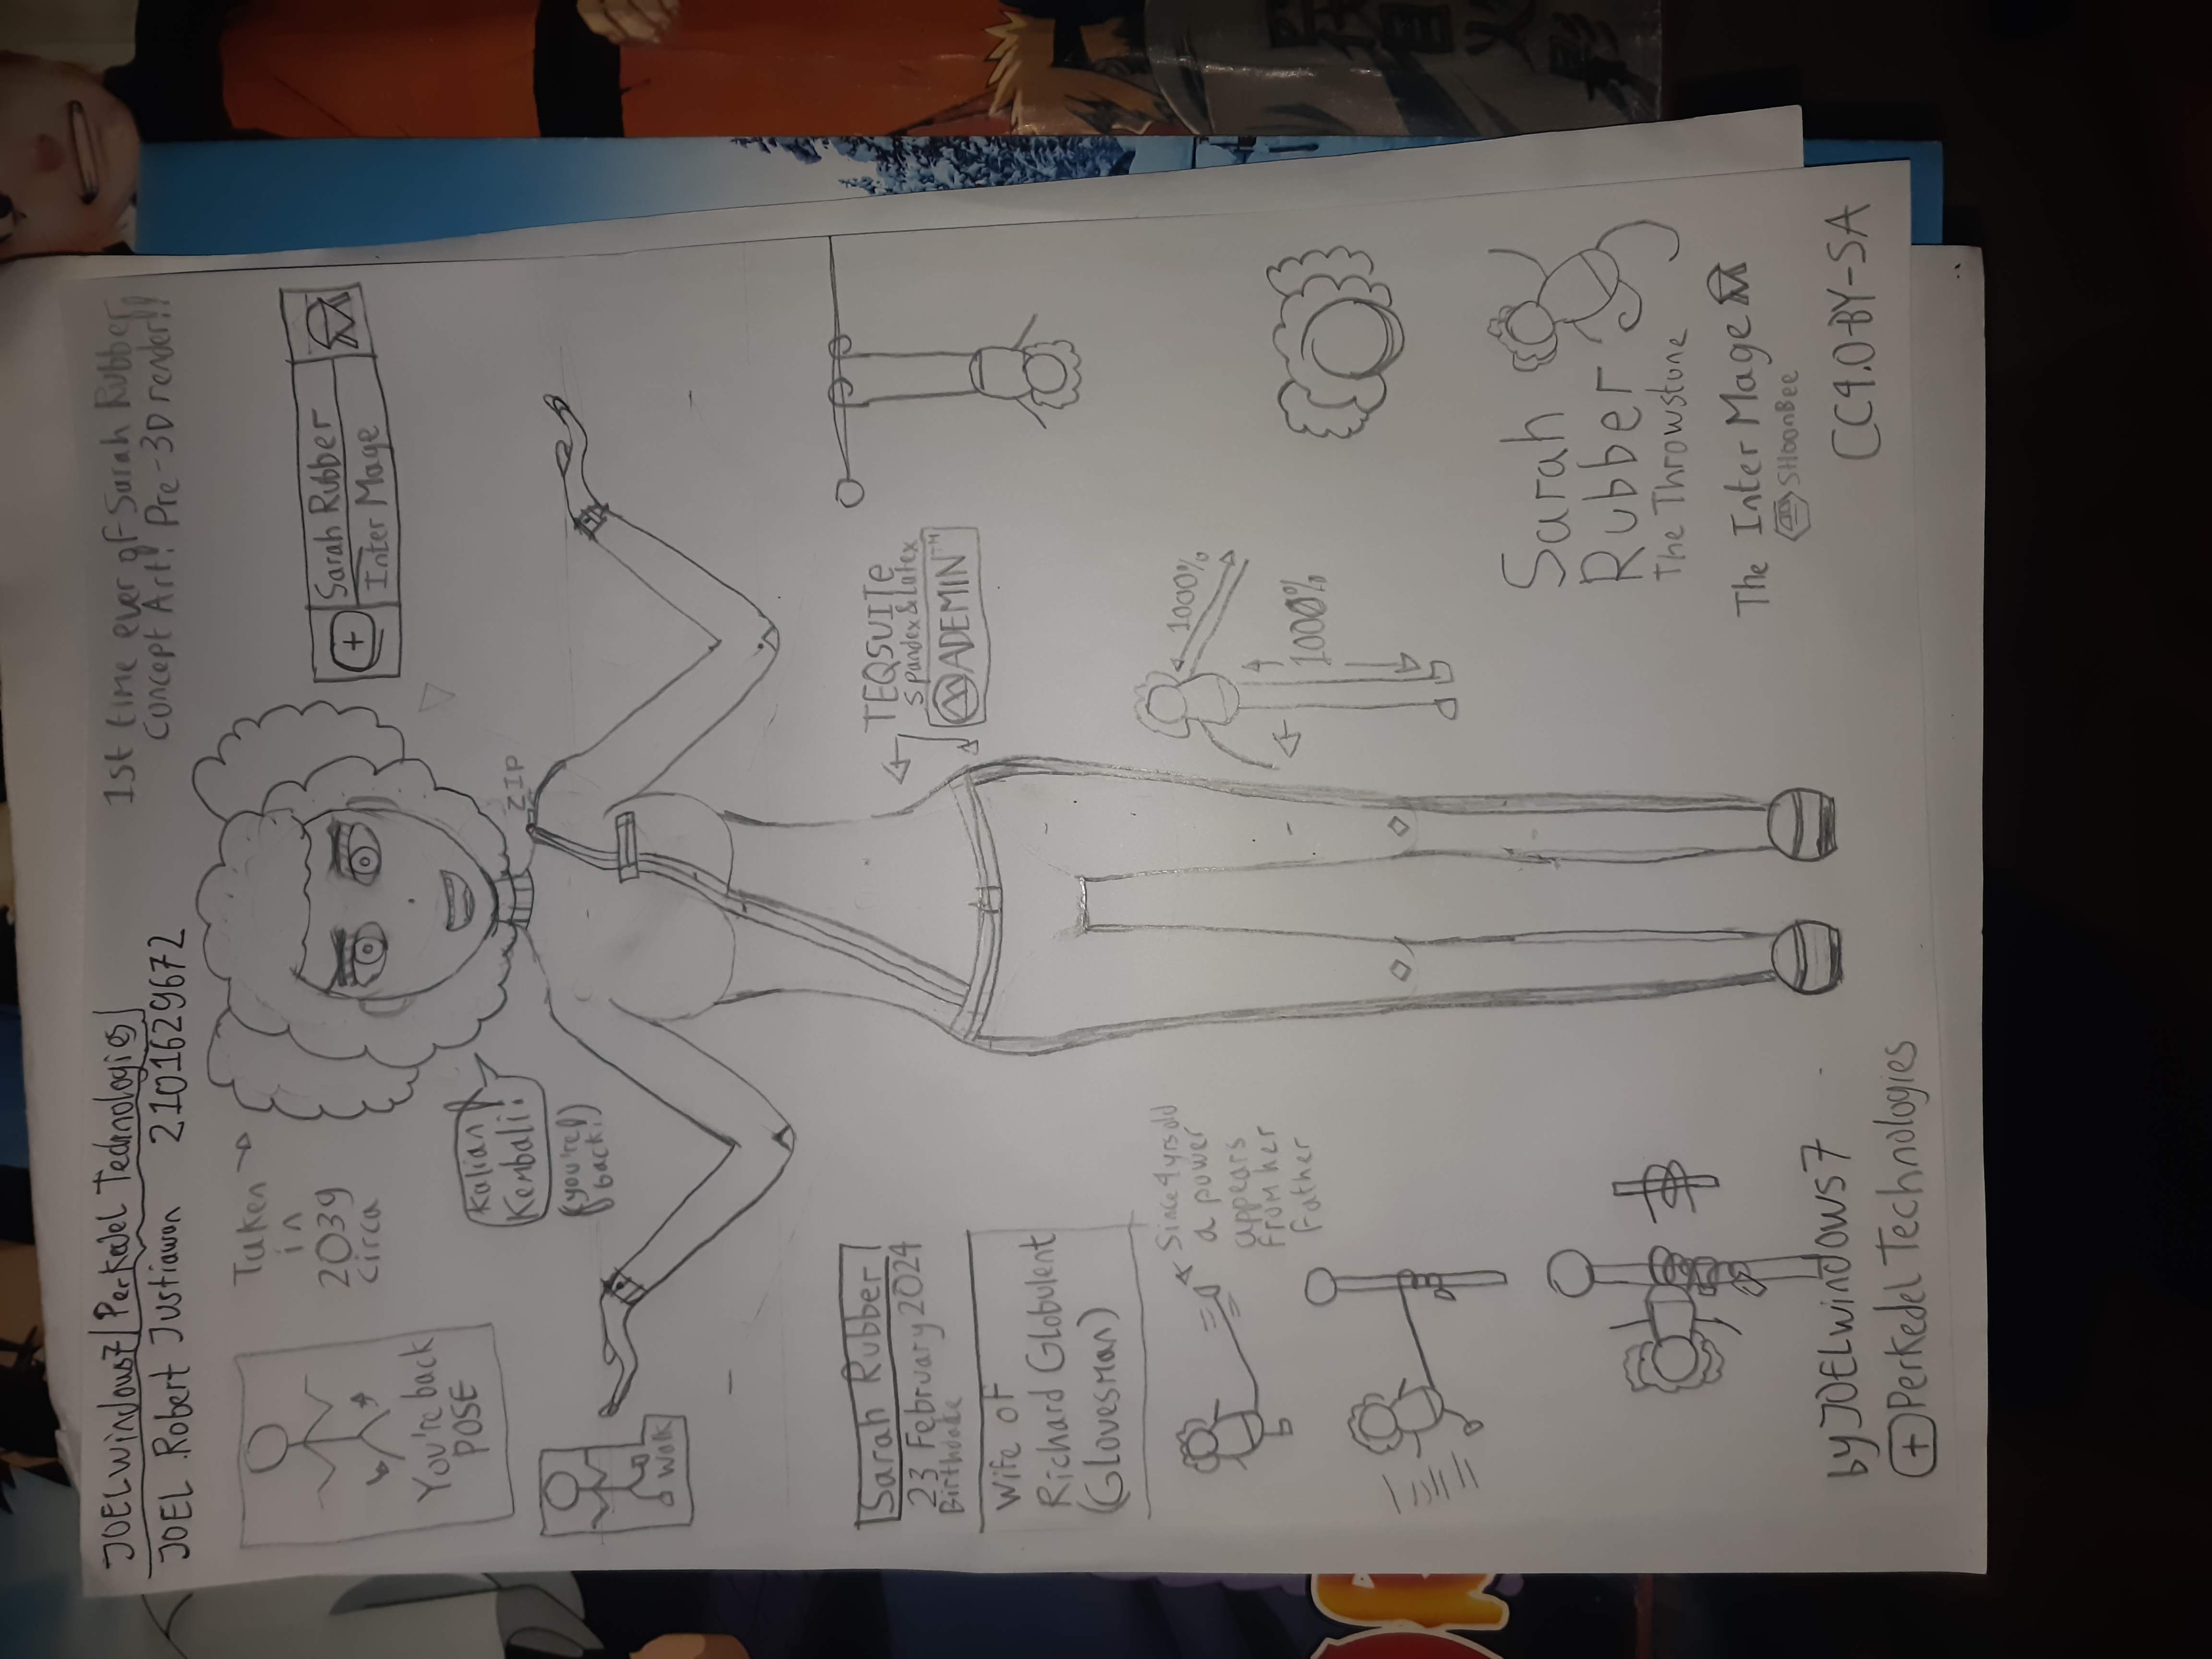 JOELwindows7 | Perkedel Technologies
JOEL Robert Justiawan 2101629672
1st time ever of Sarah Rubber
Concept Art! Pre-3D render!!
You're back
POSE
Taken
in
2039
circa
Sarah Rubber
Inter Mage
Kalian
Kembali!
(you're
back!)
ZIP
Walk
Sarah Rubber
23 February 2024
Birthdate
Wife of
Richard Globulent
(Glovesman)
TEQSUITE
Spandex & Latex
ADEMIN™
Since 4 yrs old
a power
appears
from her
Father
1000%
1000%
Sarah
Rubber
The Throwstone
The Inter Mage
SHoonBee
by JOELwindows7
Perkedel Technologies
CC4.0-BY-SA